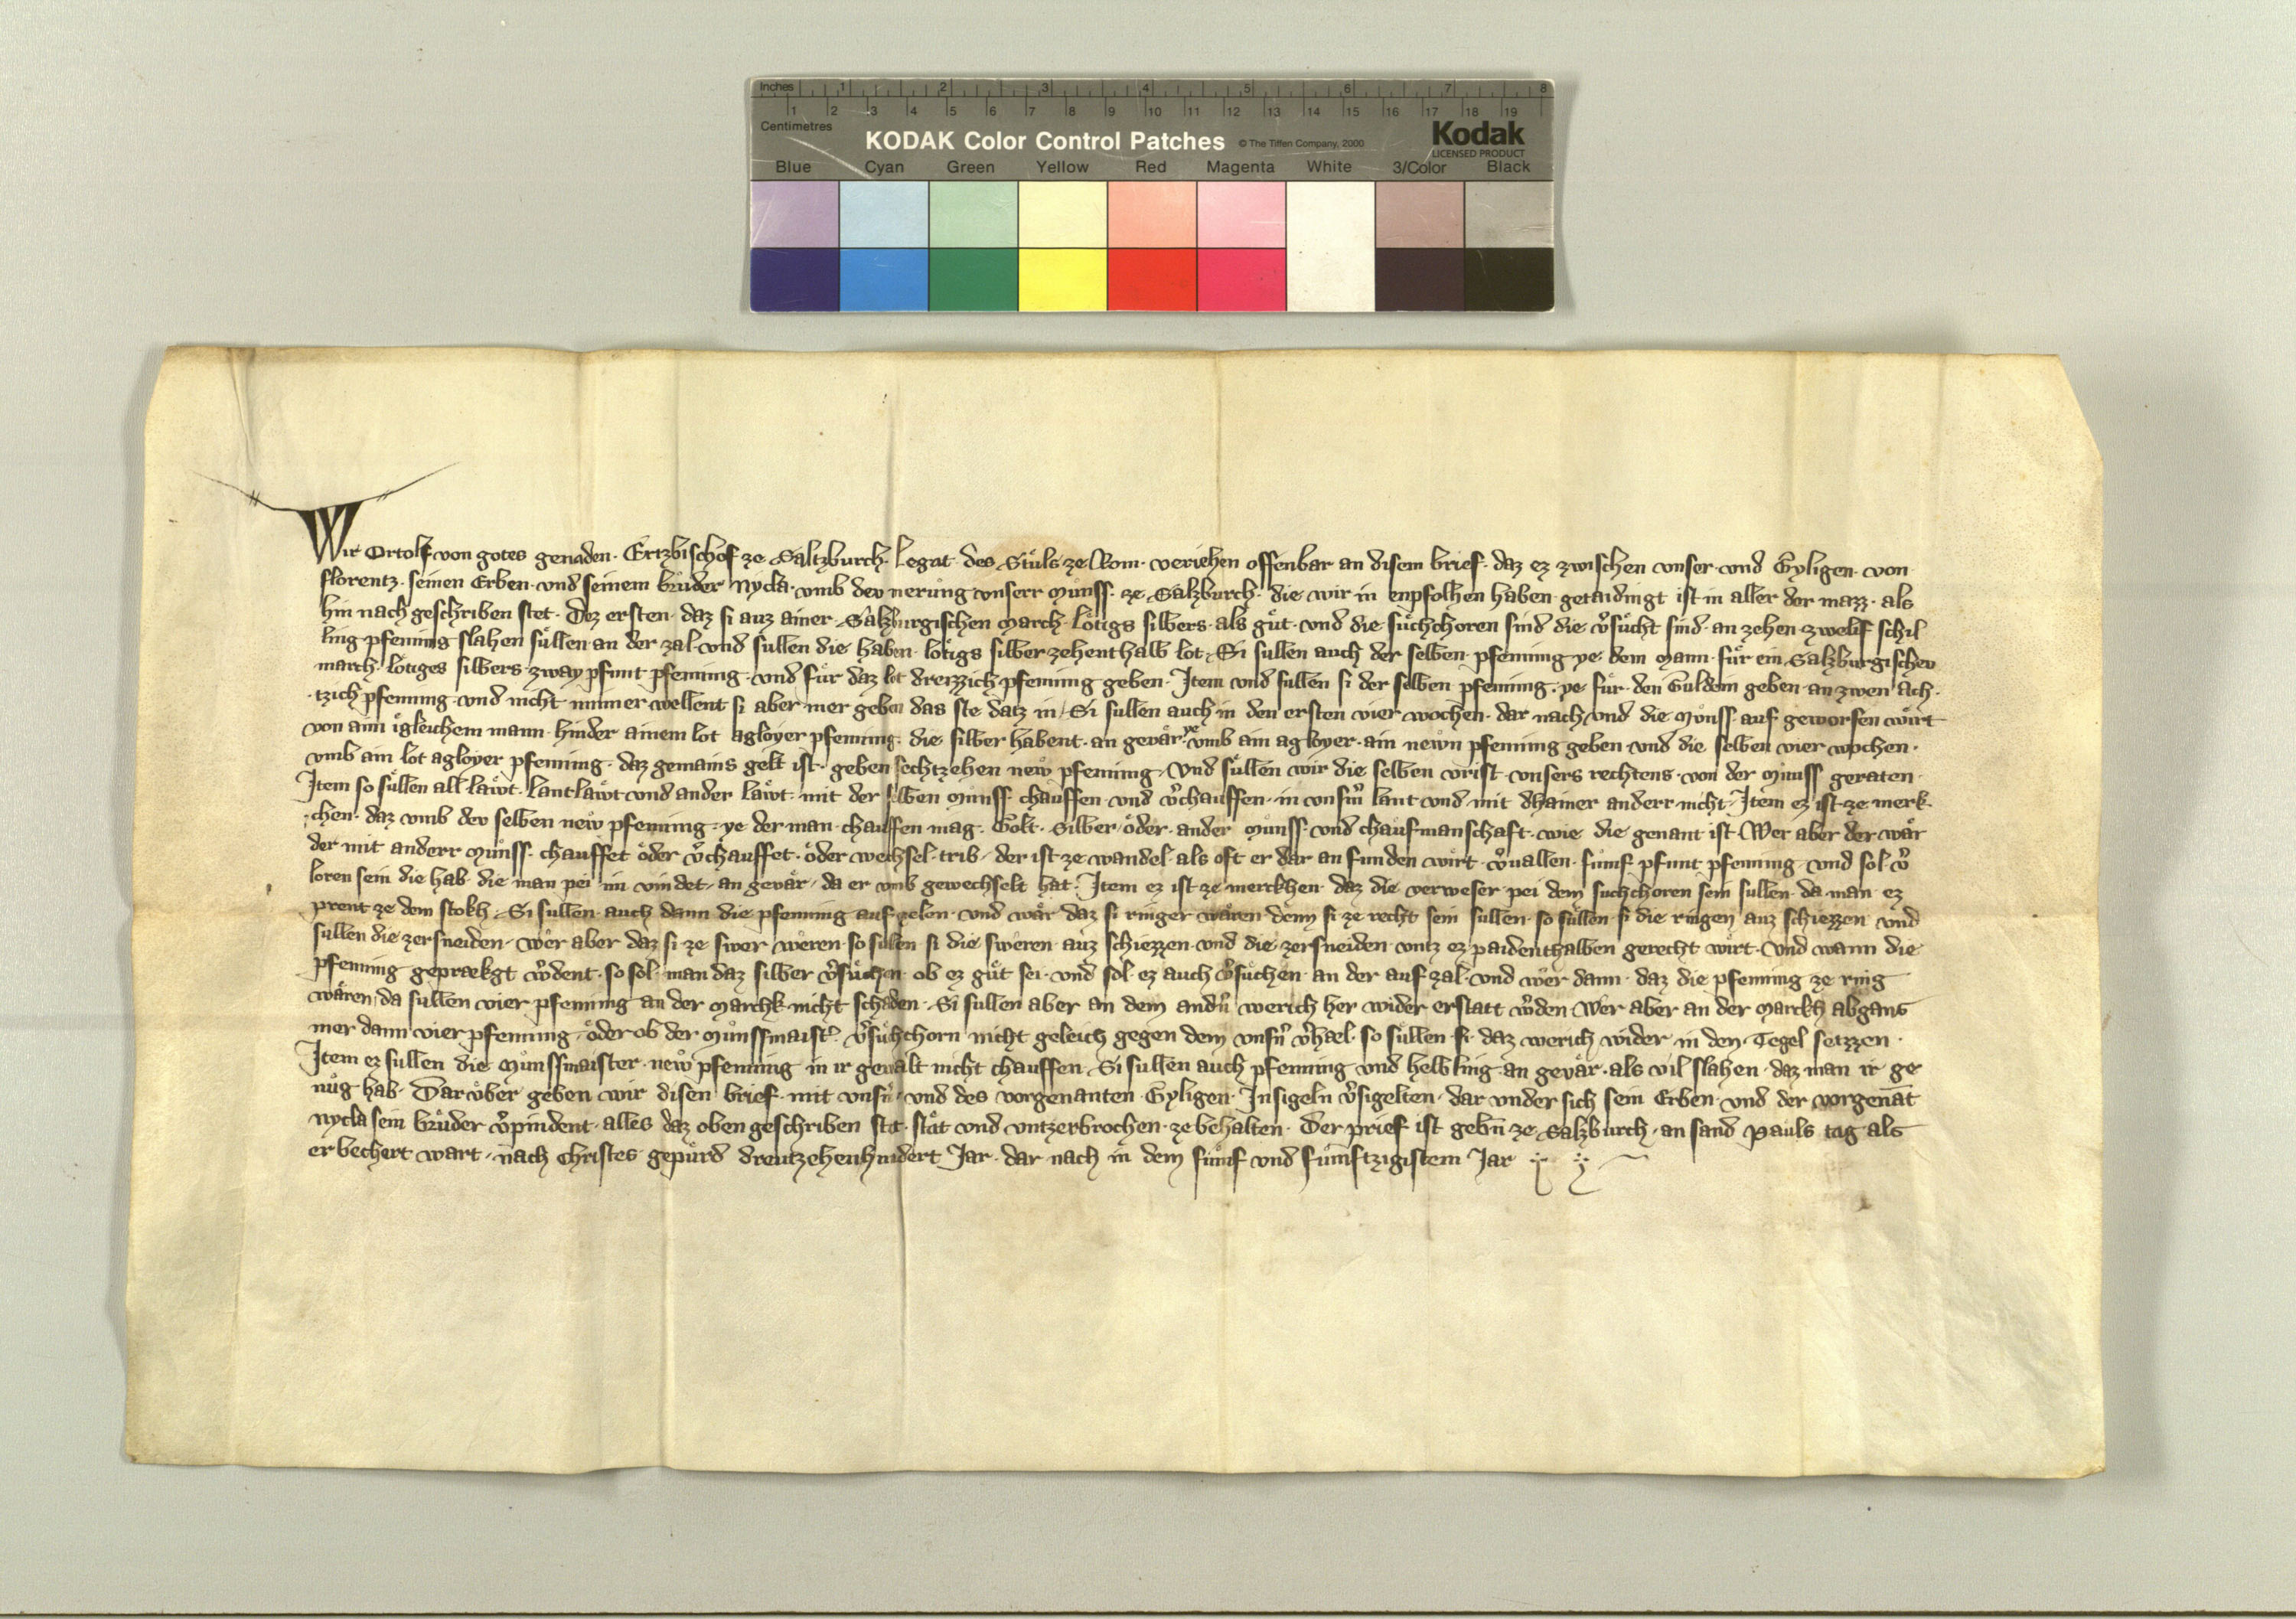 Inches 1 2 3 4 5 6 7 8
1 2 3 4 5 6 7 8 9 10 11 12 13 14 15 16 17 18 19
Centimetres
KODAK Color Control Patches © The Tiffen Company, 2000 Kodak
LICENSED PRODUCT
Blue Cyan Green Yellow Red Magenta White 3/Color Black
Wir Ortolf von gotes genaden · Ertzbischof ze Saltzburch · Legat des Stůls ze Rom · veriehen offenbar an disem brief · daz ez zwischen vnser vnd Gyligen von
florentz · seinen Erben · vnd seinem brůder Nycla · vmb dev nerůng vnserr Můnss · ze Salzburch · die wir in enpfolhen haben getaidingt ist in aller der mazz · als
hin nach geschriben stet · Dez ersten · daz si auz ainer Salzburgischen March · lötigs silbers · als gůt · vnd die sůchchoren sind die v̾sůcht sind · an zehen zwelif schil
ling pfenning slahen sůllen an der zal · vnd sullen die haben lötigs silber zehenthalb lot · Si sullen auch der selben pfenning ye dem Mann · fůr ein Salzburgischev
march lötiges silbers zway pfunt pfenning · vnd fůr daz lot dreizzich pfenning geben · Item vnd sullen si der selben pfenning · ye fůr den Guldein geben an zwen Ach ·
tzich pfenning · vnd nicht minner wellent si aber mer geben das ste datz in · Si sullen auch in den ersten vier wochen · dar nach vnd die Můnss auf geworfen wirt
von aim igleichem mann · hinder ainem lot agloyer pfenning · die silber habent · an gevär ye vmb ain agloyer · ain newn pfenning geben vnd die selben vier wochen ·
vmb ain lot agloyer pfenning · daz gemains gelt ist · geben sechtzehen new pfenning · Vnd sůllen wir die selben vrist · vnsers rechtens · von der Můnss geraten ·
Item so sůllen all läwt · lantläwt vnd ander läwt · mit der selben Munss chauffen vnd v̾chauffen · in vnsm̾ lant vnd mit dhainer anderr nicht · Item ez ist ze merk ·
chen · daz vmb dev selben new pfenning · ye der man chauffen mag · Golt · Silber oder ander Můnss · vnd chaufmanschaft · wie die genant ist · Wer aber der wär
der mit anderr Můnss · chauffet oder v̾chauffet · oder wechsel trib · der ist ze wandel · als oft er dar an funden wirt · v̾uallen · fůmf pfunt pfenning vnd sol v̾
loren sein die hab · die man pei im vindet · an gevär · da er vmb gewechselt hat · Item ez ist ze merckhen · daz die verweser pei dem suchchoren sein sullen · da man ez
prent ze dem stokh · Si sullen auch dann die pfenning auf zelen · vnd wär daz si ringer wären denn si ze recht sein sullen · so sůllen si die ringen auz schiezzen vnd
sullen die zersneiden · wer aber daz si ze swer weren · so sullen si die sweren auz schiezzen · vnd die zersneiden vntz ez paidenthalben gerecht wirt · Vnd wann die
pfenning geprækgt w̾dent · so sol man daz silber v̾sůchen ob ez gůt sei · vnd sol ez auch v̾sůchen · an der auf zal · vnd wer dann · daz die pfenning ze ring
wären da sullen vier pfenning an der Marchk nicht schaden · Si sullen aber an dem andn̾ werich her wider erstatt w̾den Wer aber an der Marckh abgans
mer dann vier pfenning · oder ob der Můnssmaist̾ v̾sůhchorn nicht geleich gegen dem vnsn̾ v̾hael · so sůllen si · daz werich wider in den Tegel setzzen ·
Item ez sullen die Můnssmaister new pfenning in ir gewalt nicht chauffen Si sullen auch pfenning vnd helbling an gevär · als vil slahen · daz man ir ge
nůg hab · Dar vber geben wir disen brief · mit vnsn̾ · vnd des vorgenanten Gyligen · Insigeln v̾sigelten · dar vnder sich sein Erben · vnd der vorgenāt
nycla sein brůder v̾pindent · alles daz oben geschriben stet · stät vnd vntzerbrochen · ze behalten · Der prief ist gebn̄ ze Salzburch · an sand Pauls tag als
er bechert wart · nach Christes gepůrd dreutzehenhundert Jar · dar nach in dem fůmf vnd fůmftzigistem Jar